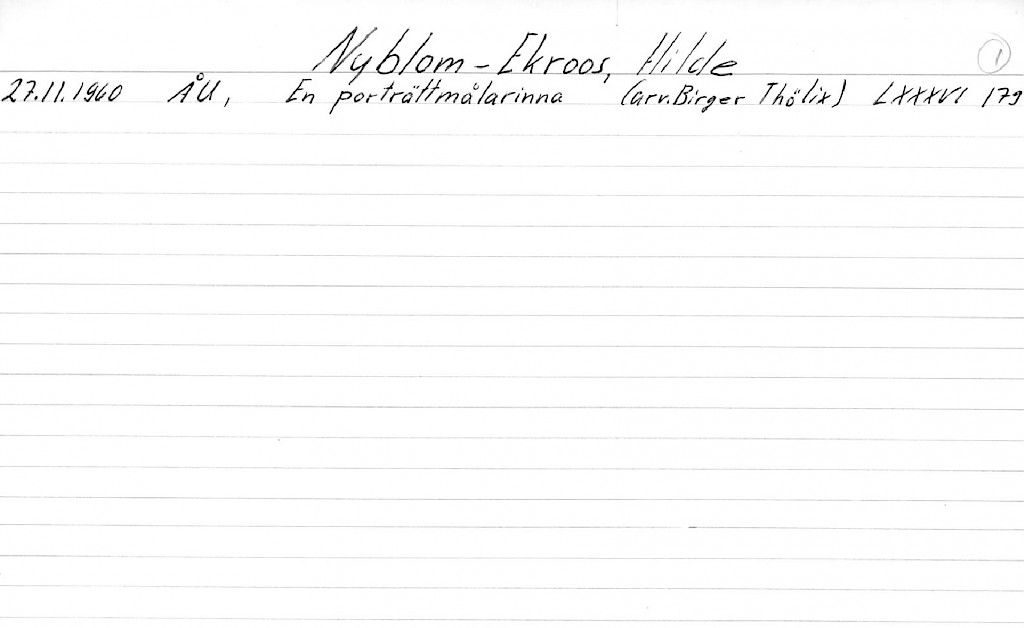 Nyblom-Ekroos, Hilde 1
27.11.1960 ÅU, En porträttmålarinna (arv. Birger Thölix) LXXXVI 179